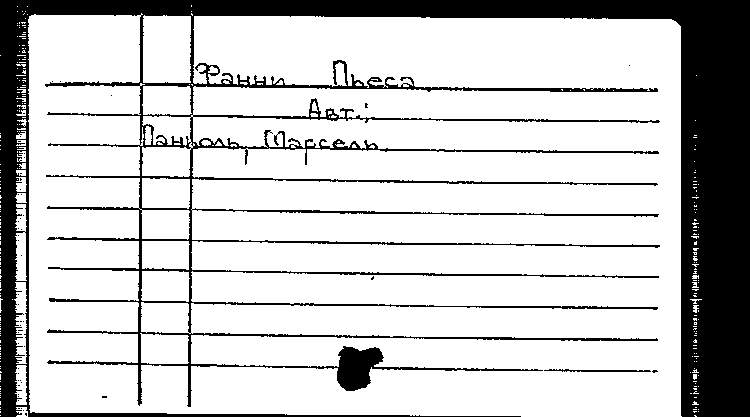 Фанни. Пьеса
Авт.:
Паньоль, Марсель.